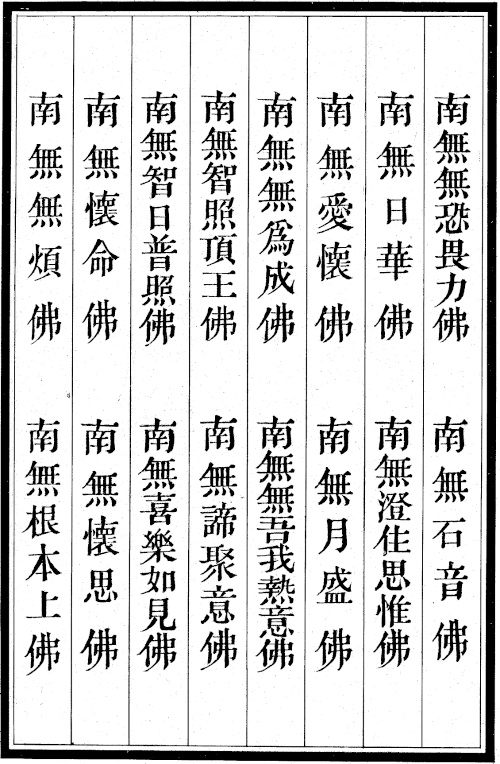 南無無恐畏力佛　南無石音佛
南無日華佛　南無澄住思惟佛
南無愛懷佛　南無月盛佛
南無無為成佛　南無無吾我熱意佛
南無智照頂王佛　南無諦聚意佛
南無智日普照佛　南無喜樂如見佛
南無懷命佛　南無懷思佛
南無無煩佛　南無根本上佛